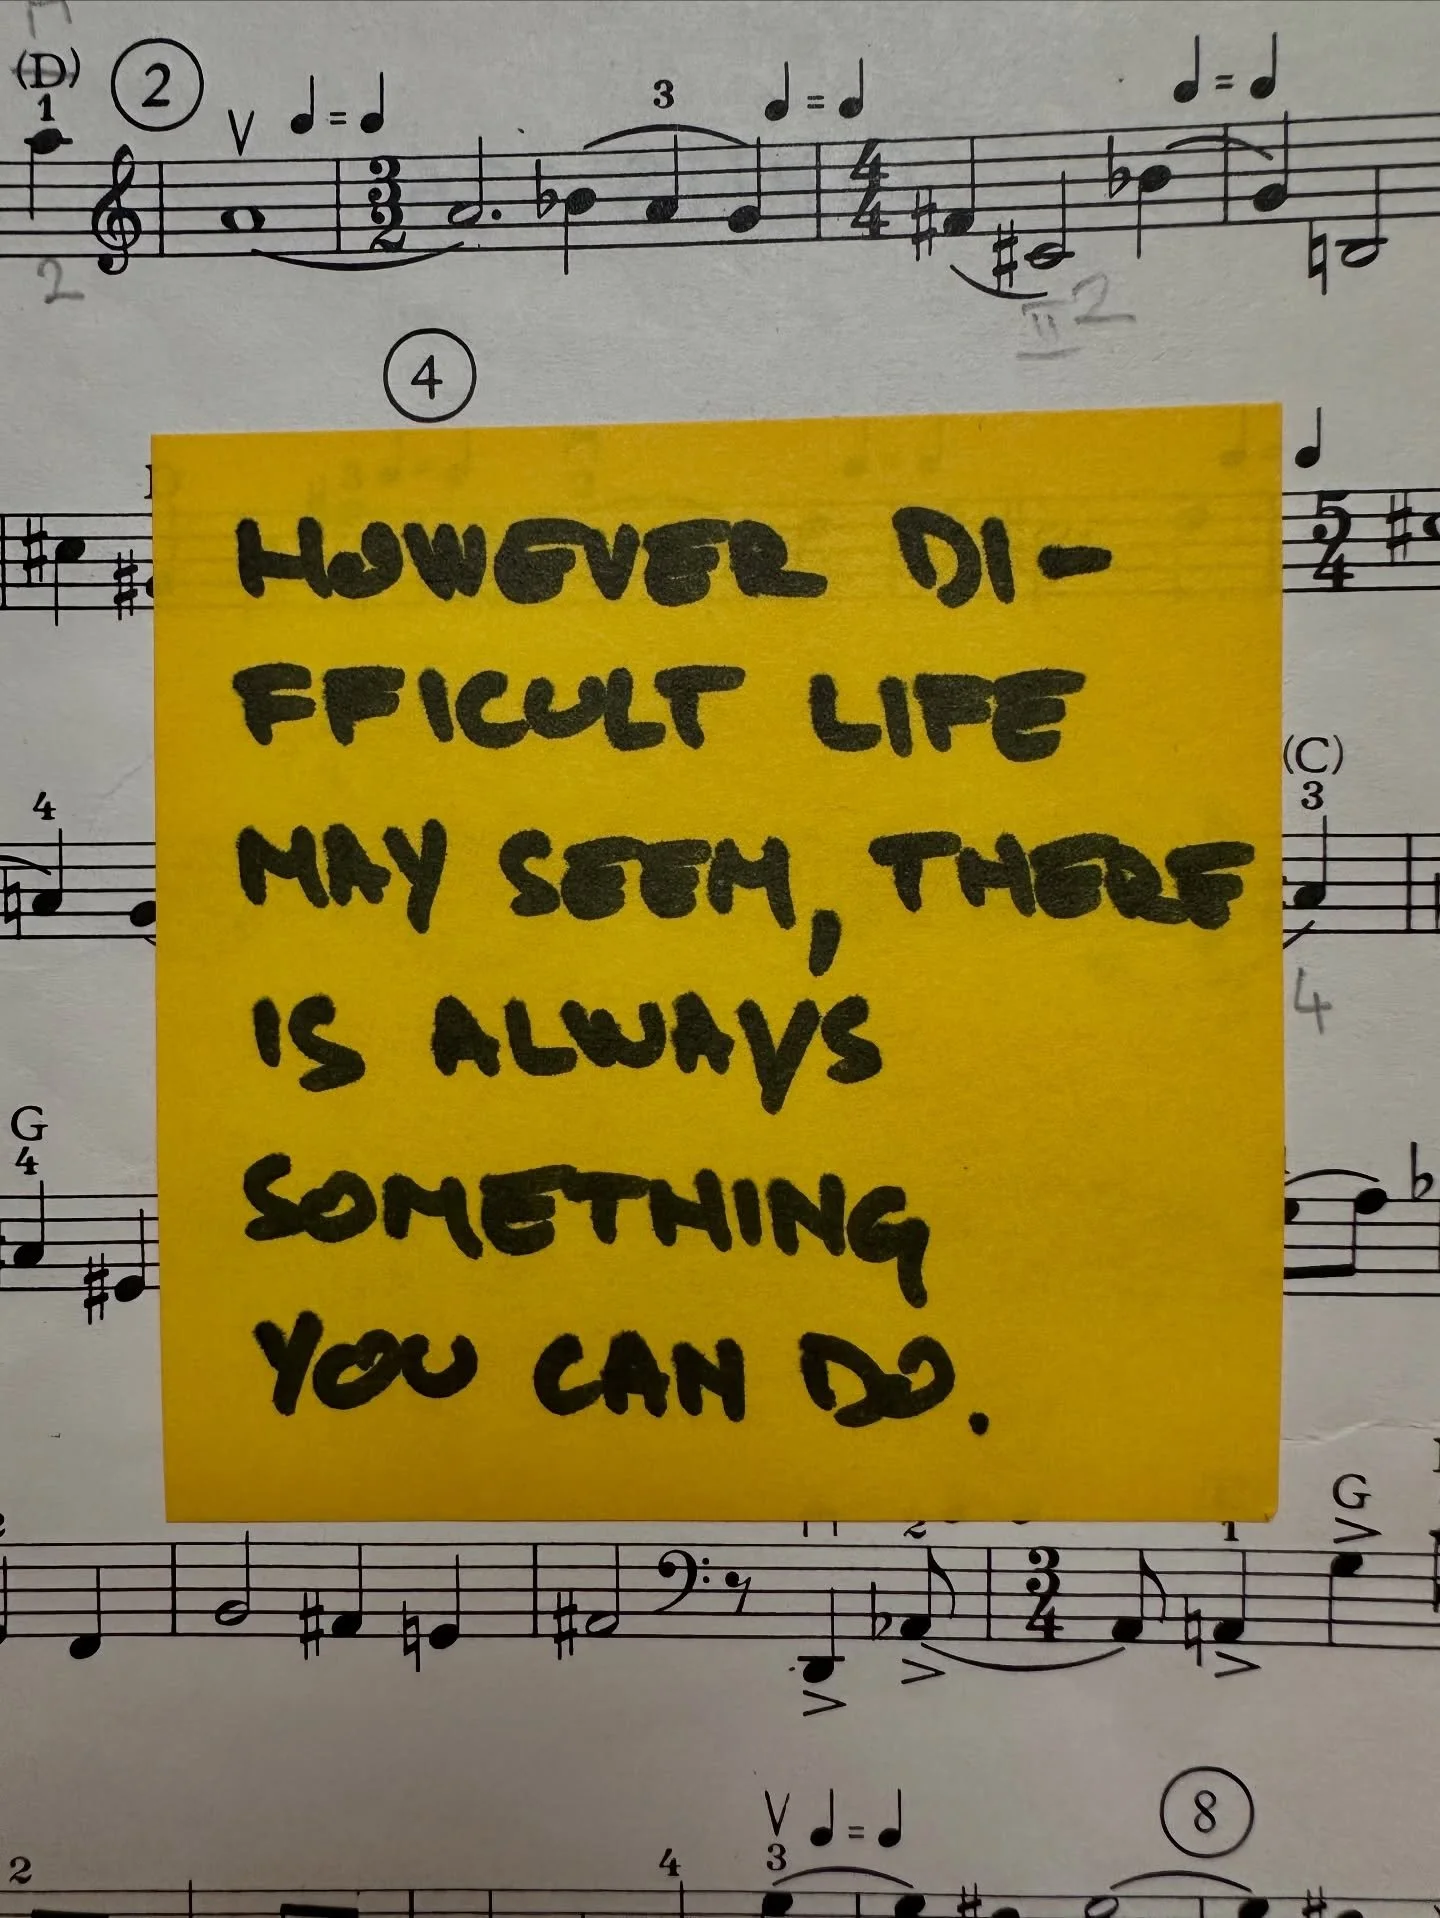 (D)
1
2
V
3
3
2
4
4
2
II 2
4
HOWEVER DI-
FFICULT LIFE
MAY SEEM, THERE
IS ALWAYS
SOMETHING
YOU CAN DO.
5
4
4
(C)
3
4
G
4
2
1
G
3
4
V
3
8
2
4